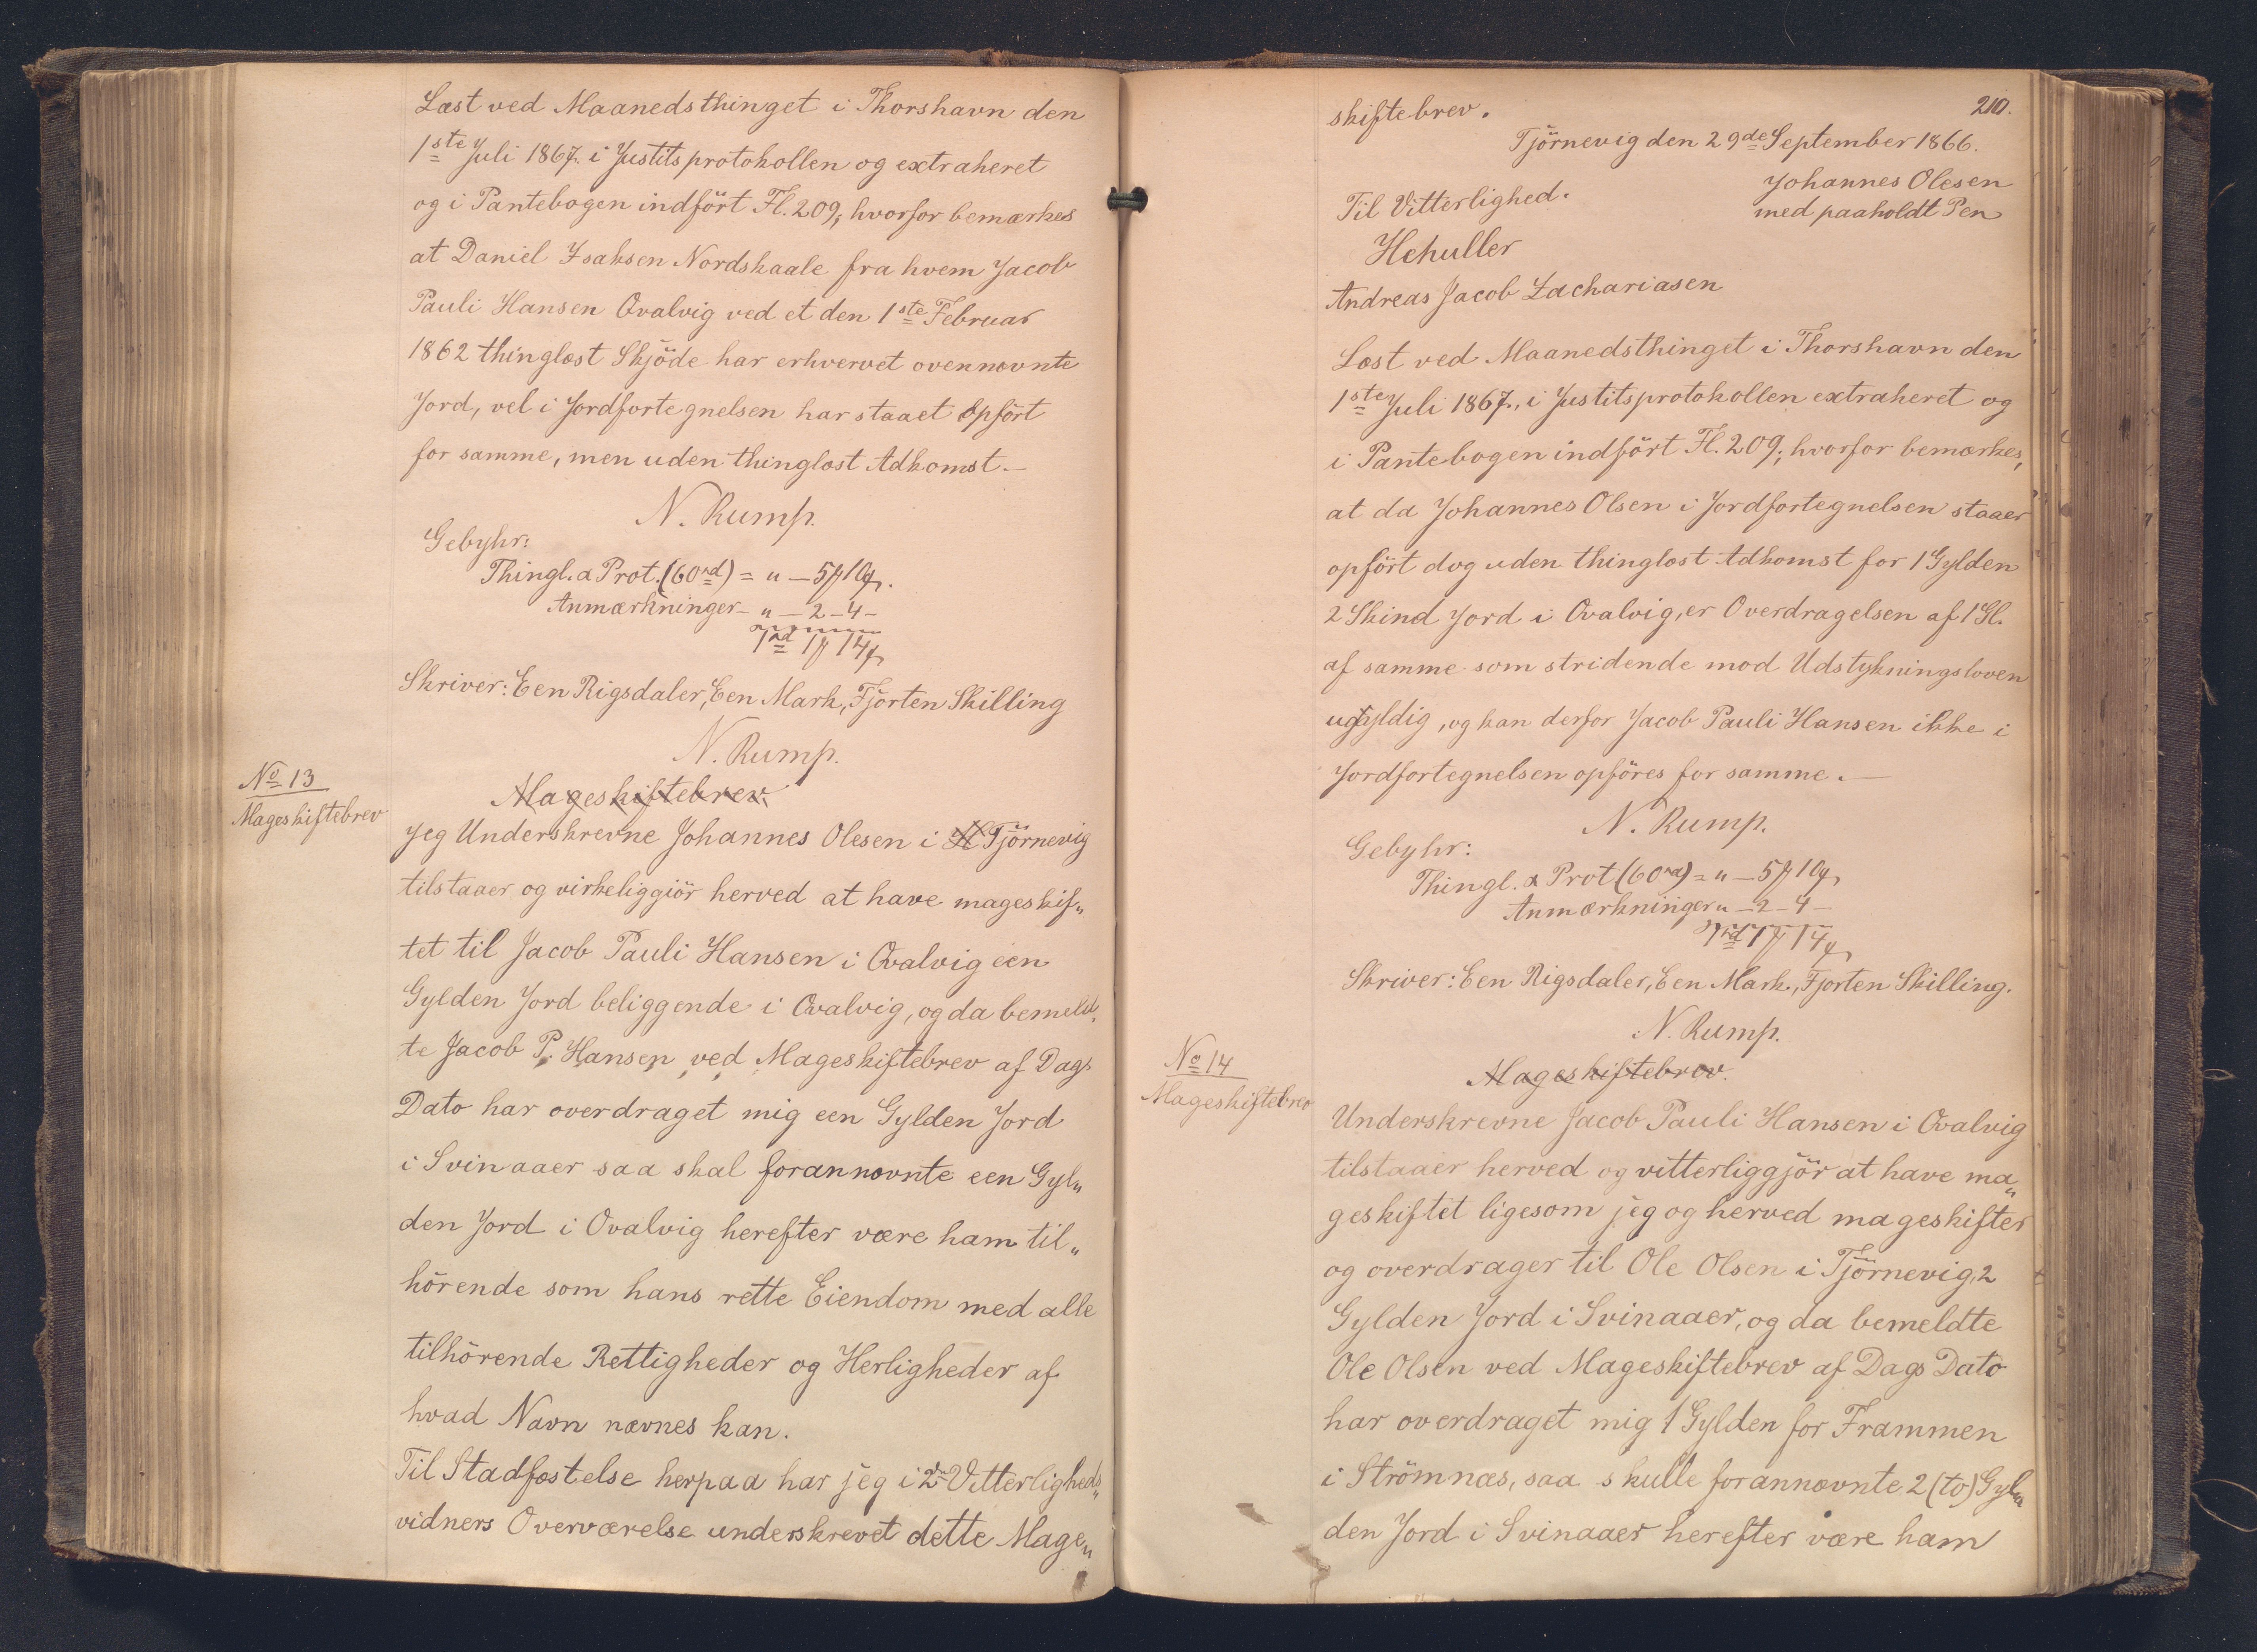 Læst ved Maanedsthinget i Thorshavn den
1ste Juli 1867. i Justitsprotokollen og extraheret
og i Pantebogen indfört Fl. 209; hvorfor bemærkes
at Daniel Isaksen Nordskaale fra hvem Jacob
Pauli Hansen Qvalvig ved et den 1ste Februar
1862 thinglæst Skjöde har erhvervet ovennævnte
Jord, vel i Jordfortegnelsen har staaet opfört
for samme, men uden thinglæst Adkomst.—
N. Rump.
Gebyhr:
Thingl. & Prot. (60rd) = " — 5 10
Anmærkninger — " — 2 — 4 —
1rd 1 14
Skriver: Een Rigsdaler, Een Mark, Fjorten Skilling
N. Rump.
No 13
Mageskiftebrev
Mageskiftebrev.
Jeg Underskrevne Johannes Olesen i Tjörnevig
tilstaaer og virkeliggiör herved at have mageskif„
tet til Jacob Pauli Hansen i Qvalvig een
Gylden Jord beliggende i Qvalvig, og da bemeld„
te Jacob P. Hansen ved Mageskiftebrev af Dags
Dato har overdraget mig een Gylden Jord
i Svinaaer saa skal forannævnte een Gyl„
den Jord i Qvalvig herefter være ham til„
hörende som hans rette Eiendom med alle
tilhörende Rettigheder og Herligheder af
hvad Navn nævnes kan.
Til Stadfæstelse herpaa har jeg i 2de Vitterligheds„
vidners Overværelse underskrevet dette Mage„
210.
skiftebrev.
Tjörnevig den 29de September 1866.
Johannes Olesen
med paaholdt Pen
Til Vitterlighed.
HMuller
Andreas Jacob Zachariasen
Læst ved Maanedsthinget i Thorshavn den
1ste Juli 1867., i Justitsprotokollen extraheret og
i Pantebogen indfört Fl. 209; hvorfor bemærkes,
at da Johannes Olsen i Jordfortegnelsen staaer
opfört dog uden thinglæst Adkomst for 1 Gylden
2 Skind Jord i Qvalvig, er Overdragelsen af 1 Gl.
af samme som stridende mod Udstykningsloven
ugyldig, og kan derfor Jacob Pauli Hansen ikke i
Jordfortegnelsen opföres for samme.—
N. Rump.
Gebyhr:
Thingl. & Prot (60rd) = " — 5 10
Anmærkninger " — 2 — 4 —
1rd 1 14
Skriver: Een Rigsdaler, Een Mark., Fjorten Skilling.
N. Rump.
No 14
Mageskiftebrev
Mageskiftebrev.
Underskrevne Jacob Pauli Hansen i Qvalvig
tilstaaer herved og vitterliggjör at have ma„
geskiftet ligesom jeg og herved mageskifter
og overdrager til Ole Olsen i Tjörnevig, 2
Gylden Jord i Svinaaer, og da bemeldte
Ole Olsen ved Mageskiftebrev af Dags Dato
har overdraget mig 1 Gylden for Frammen
i Strömnæs, saa skulle forannævnte 2 (to) Gyl„
den Jord i Svinaaer herefter være ham